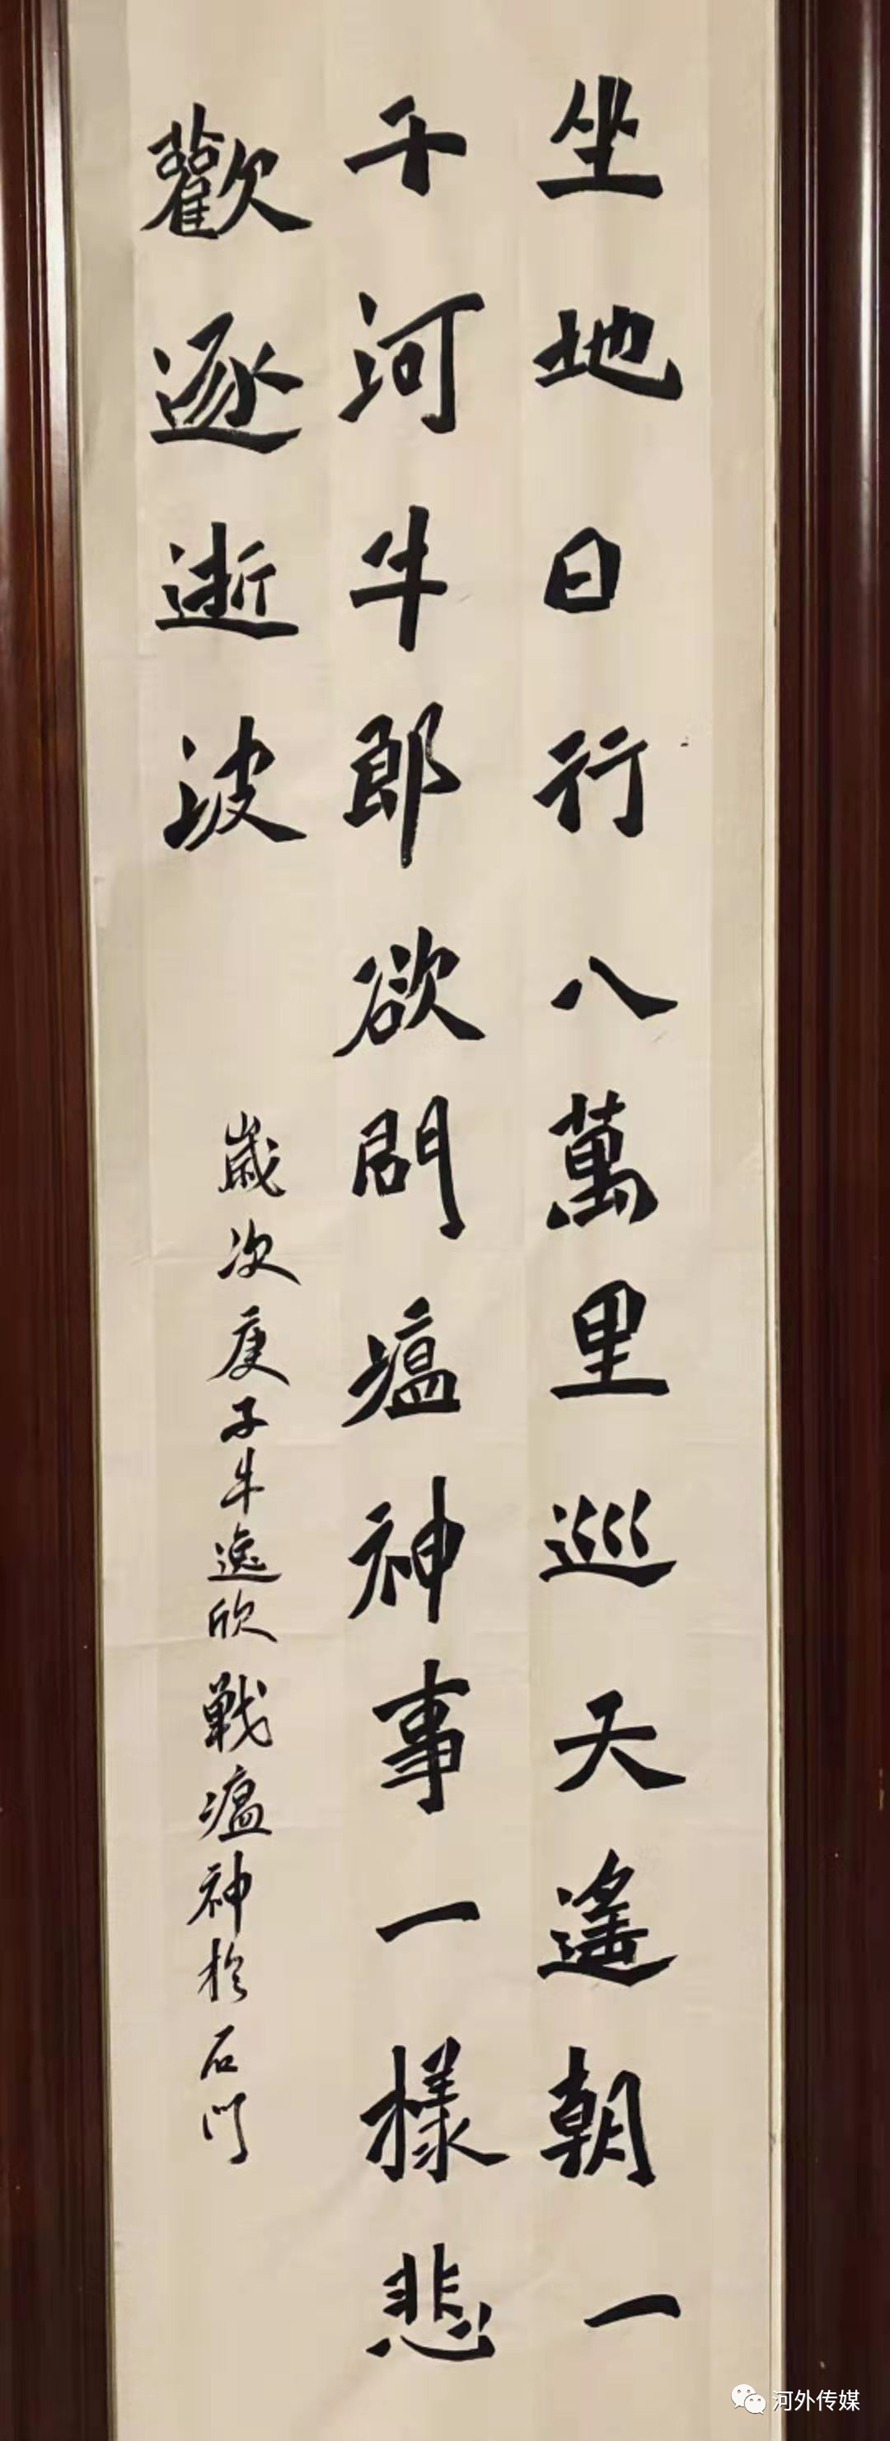 坐地日行八萬里巡天遙朝一
千河牛郎欲問瘟神事一樣悲
歡逐逝波
歲次庚子牛逸欣戰瘟神於石門
河外传媒